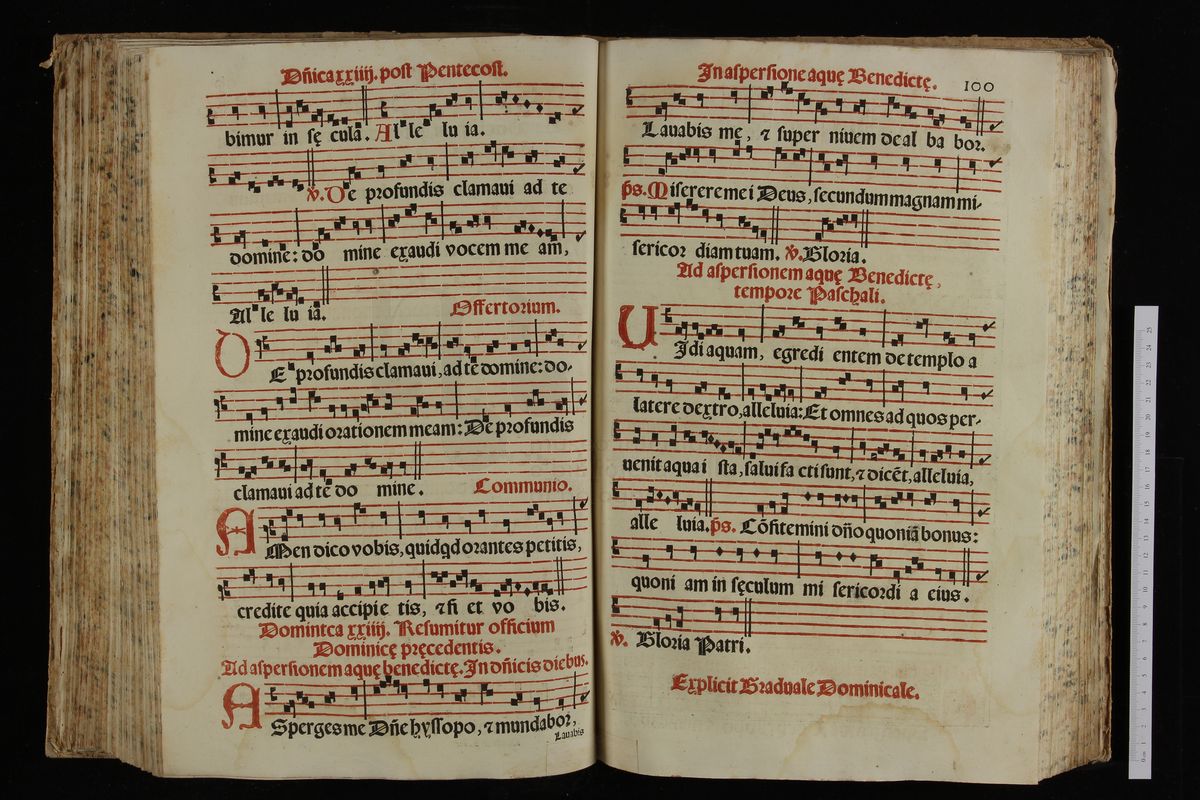 Dñica xxiiij. post Pentecost.
bimur in sę cula. Al le lu ia.
℣. De profundis clamaui ad te
domine: do mine exaudi vocem me am,
Al le lu ia. Offertorium.
DE profundis clamaui, ad te domine: do-
mine exaudi orationem meam: De profundis
clamaui ad te do mine. Communio.
AMen dico vobis, quidqd orantes petitis,
credite quia accipie tis, ⁊ fi et vo bis.
Domintca xxiiij. Resumitur officium
Dominicę pręcedentis.
Ad aspersionem aquę benedictę. In dñicis diebus.
ASperges me Dñe hyssopo, ⁊ mundabor,
Lauabis
In aspersione aquę Benedictę. 100
Lauabis me, ⁊ super niuem de al ba bor.
ps. Miserere me i Deus, secundum magnam mi-
sericor diam tuam. ℣. Gloria.
Ad aspersionem aquę Benedictę,
tempore Paschali.
UIdi aquam, egredi entem de templo a
latere dextro, alleluia: Et omnes ad quos per-
uenit aqua i sta, salui fa cti sunt, ⁊ dicēt, alleluia,
alle luia. ps. Cõfitemini dño quoniã bonus:
quoni am in sęculum mi sericordi a eius.
℣. Gloria Patri.
Explicit Graduale Dominicale.